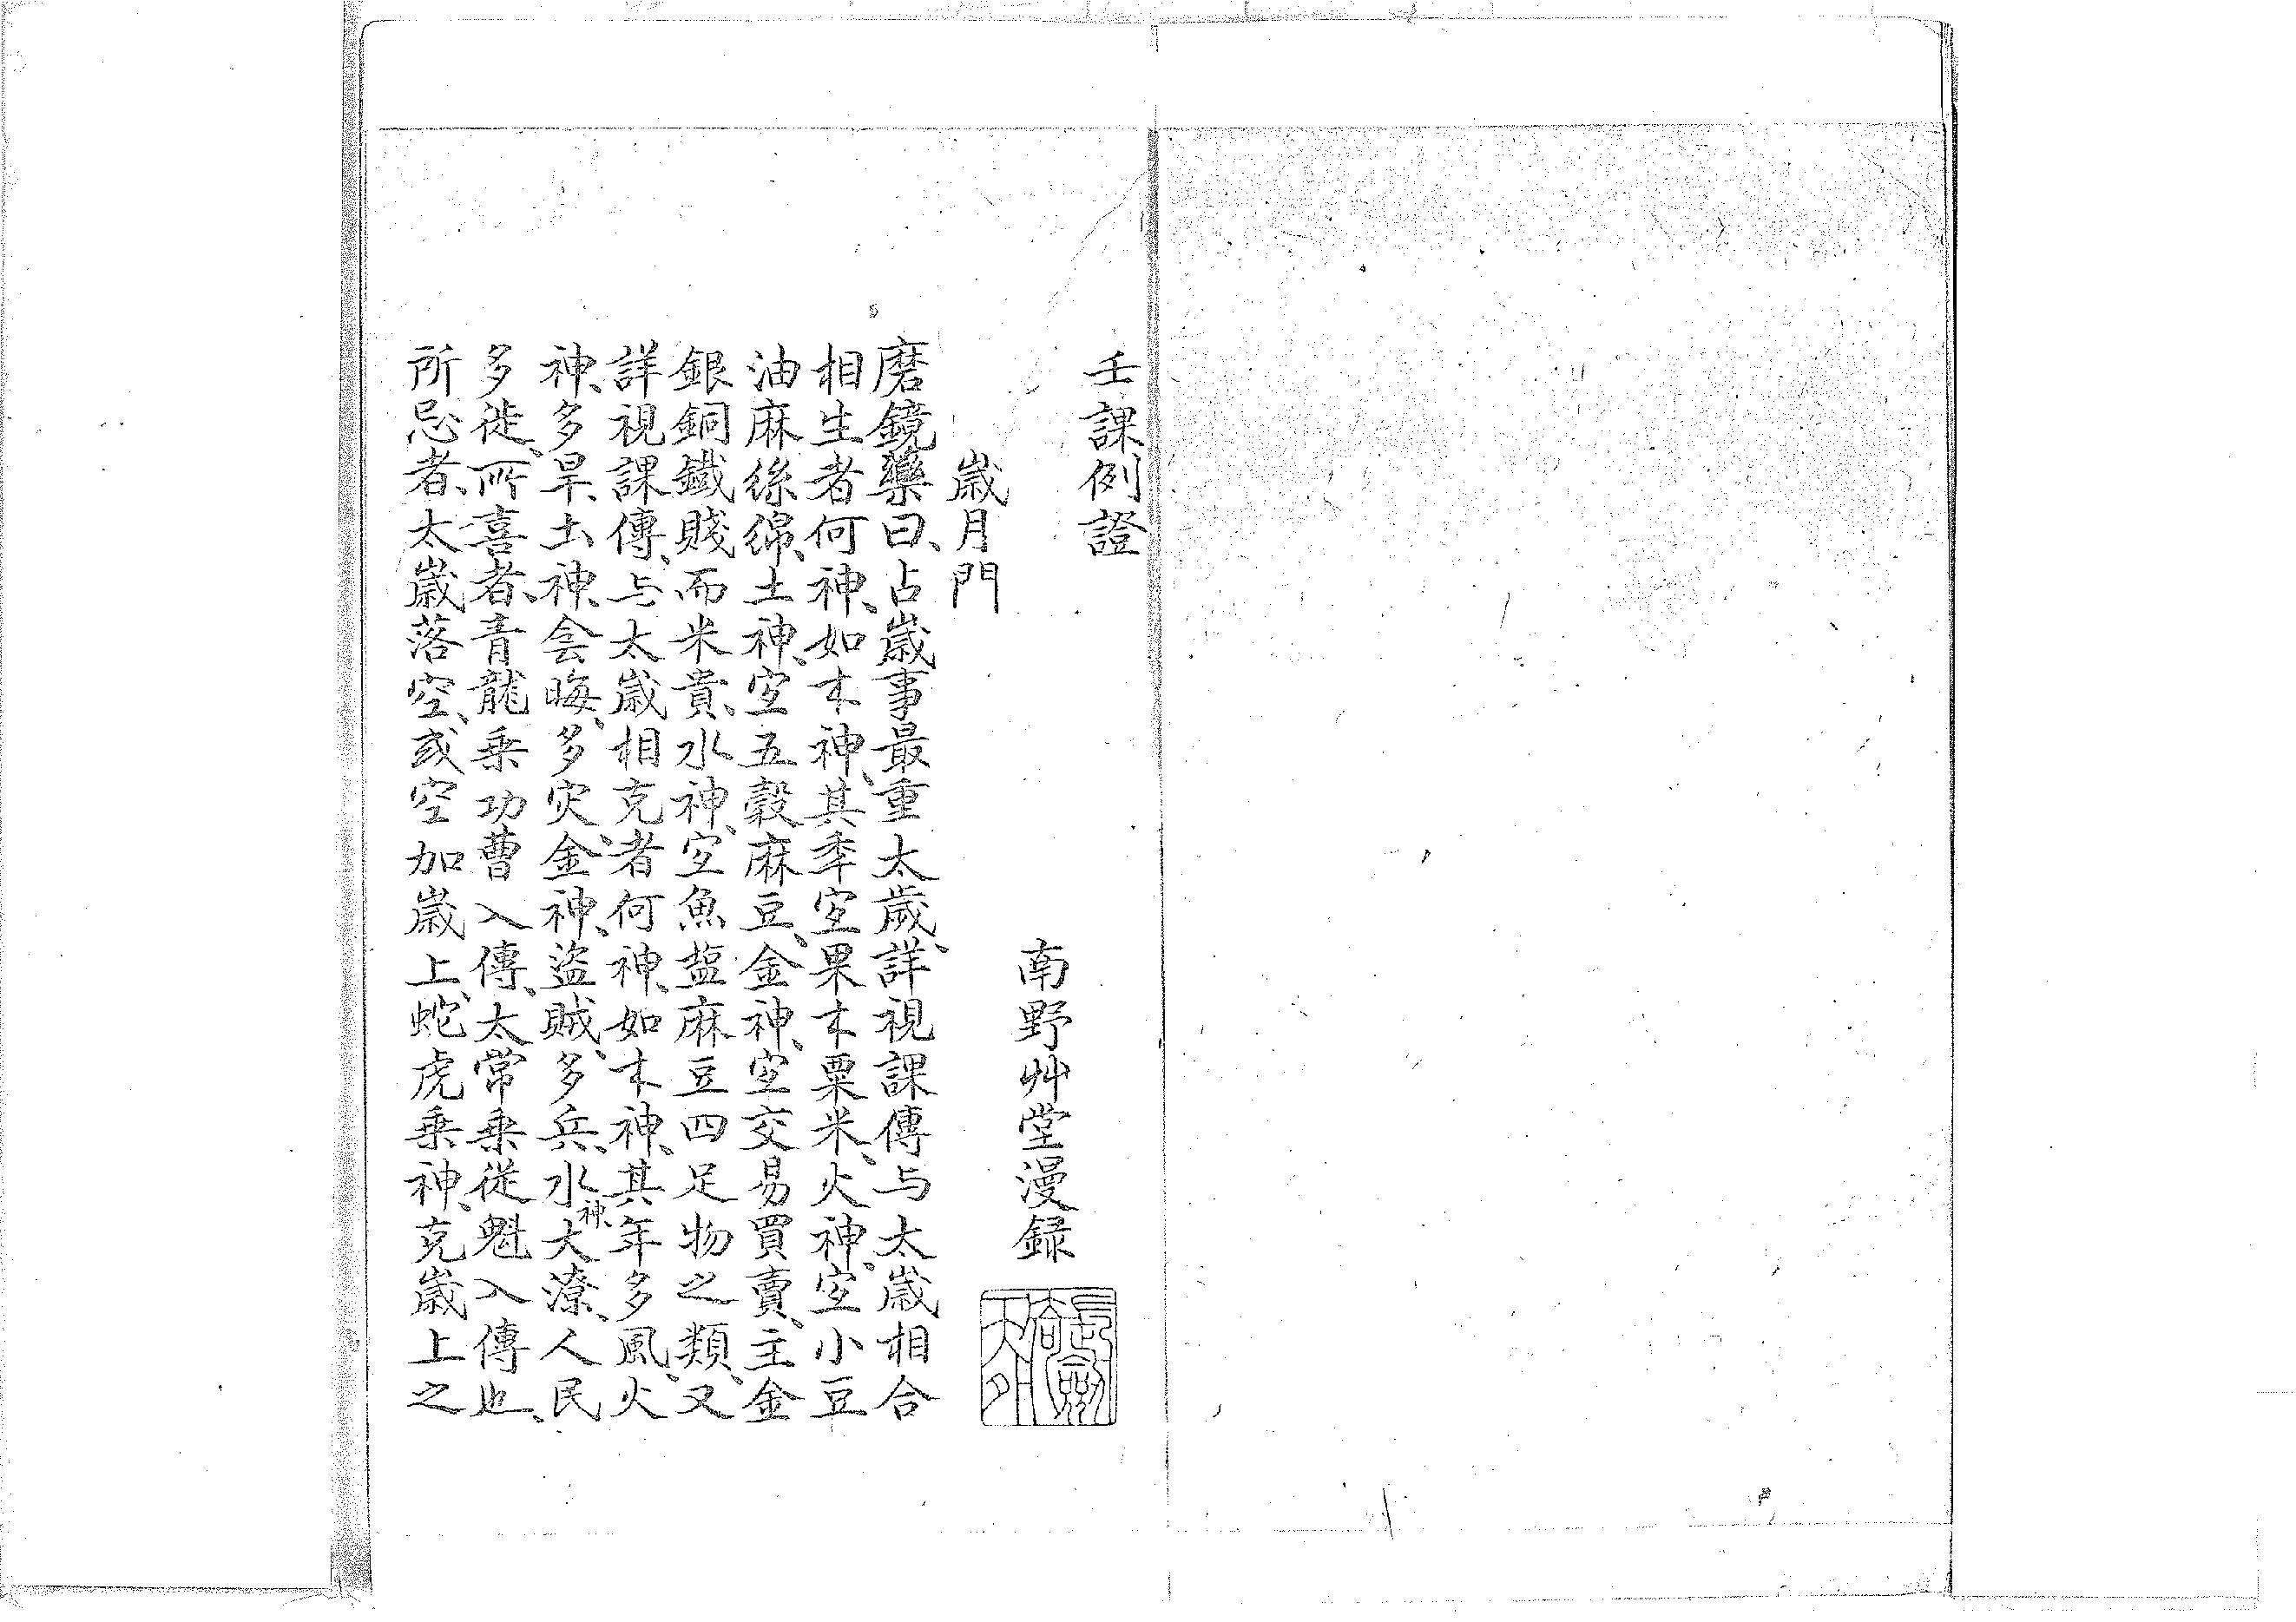 壬課例證
南野艸堂漫録
歳月門
磨鏡藥曰、占歳事最重太歳、詳視課傳与太歳相合
相生者何神、如木神、其秊宐果木粟米、火神、宐小豆
油麻絲綿、土神、宐五穀麻豆、金神、宐交易買賣、主金
銀銅鐵賤而米貴、水神、宐魚塩麻豆四足物之類、又
詳視課傳、与太歳相克者何神、如木神、其年多風、火
神、多旱、土神、会晦、多灾、金神、盜賊、多兵、水神、大潦、人民
多徙、所喜者、青龍乗功曹入傳、太常乗從魁入傳也、
所忌者、太歳落空、或空加歳上、蛇虎乗神、克歳上之